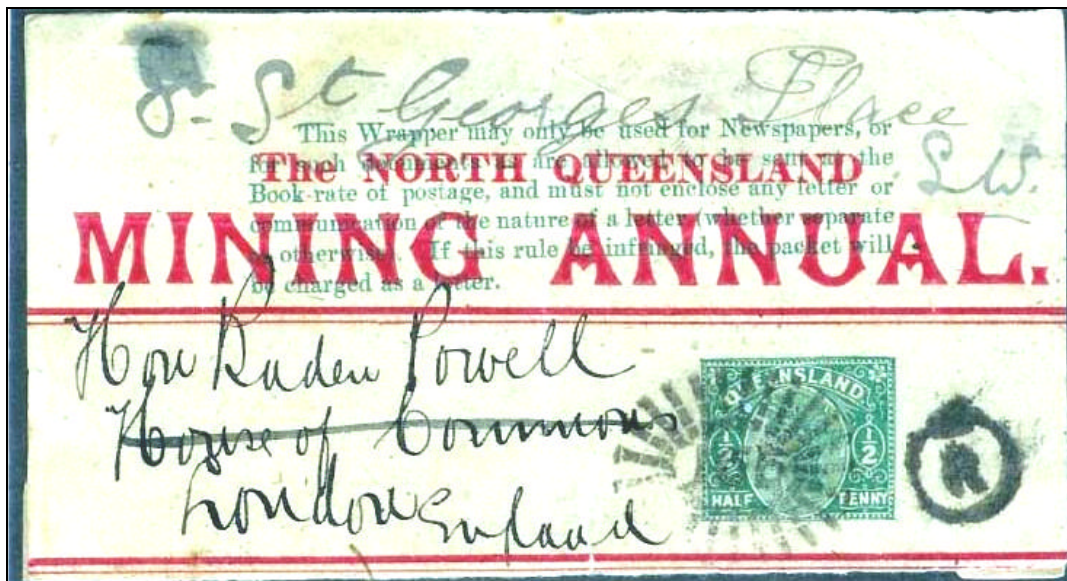 8- St Georges Place
S.W.
This Wrapper may only be used for Newspapers, or
for such documents as are allowed to be sent at the
Book-rate of postage, and must not enclose any letter or
communication of the nature of a letter (whether separate
or otherwise). If this rule be infringed, the packet will
be charged as a letter.
The NORTH QUEENSLAND
MINING ANNUAL.
Hon Baden Powell
House of Commons
London England
QUEENSLAND
½ ½
HALF PENNY
R